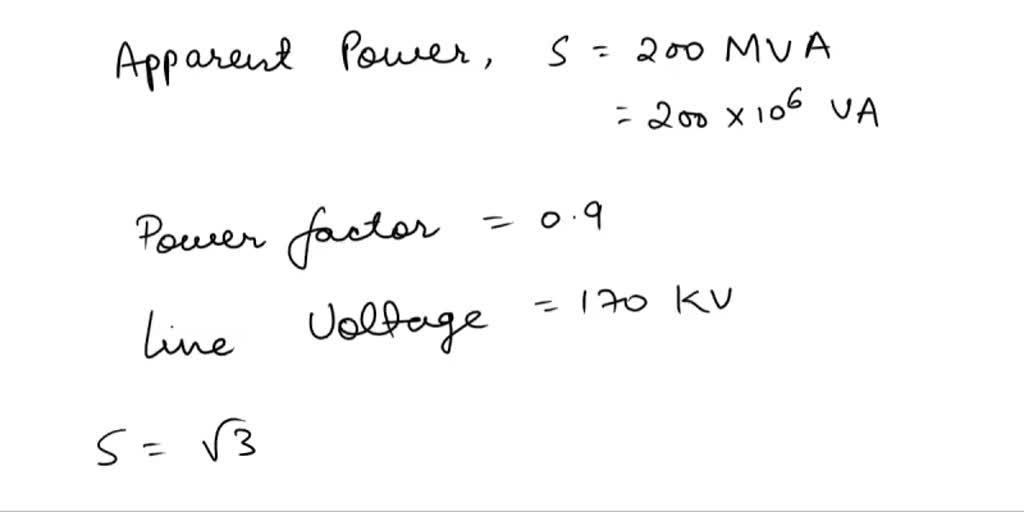 Apparent Power, S = 200 MVA
= 200 × 10⁶ VA
Power factor = 0.9
Line Voltage = 170 KV
S = √3